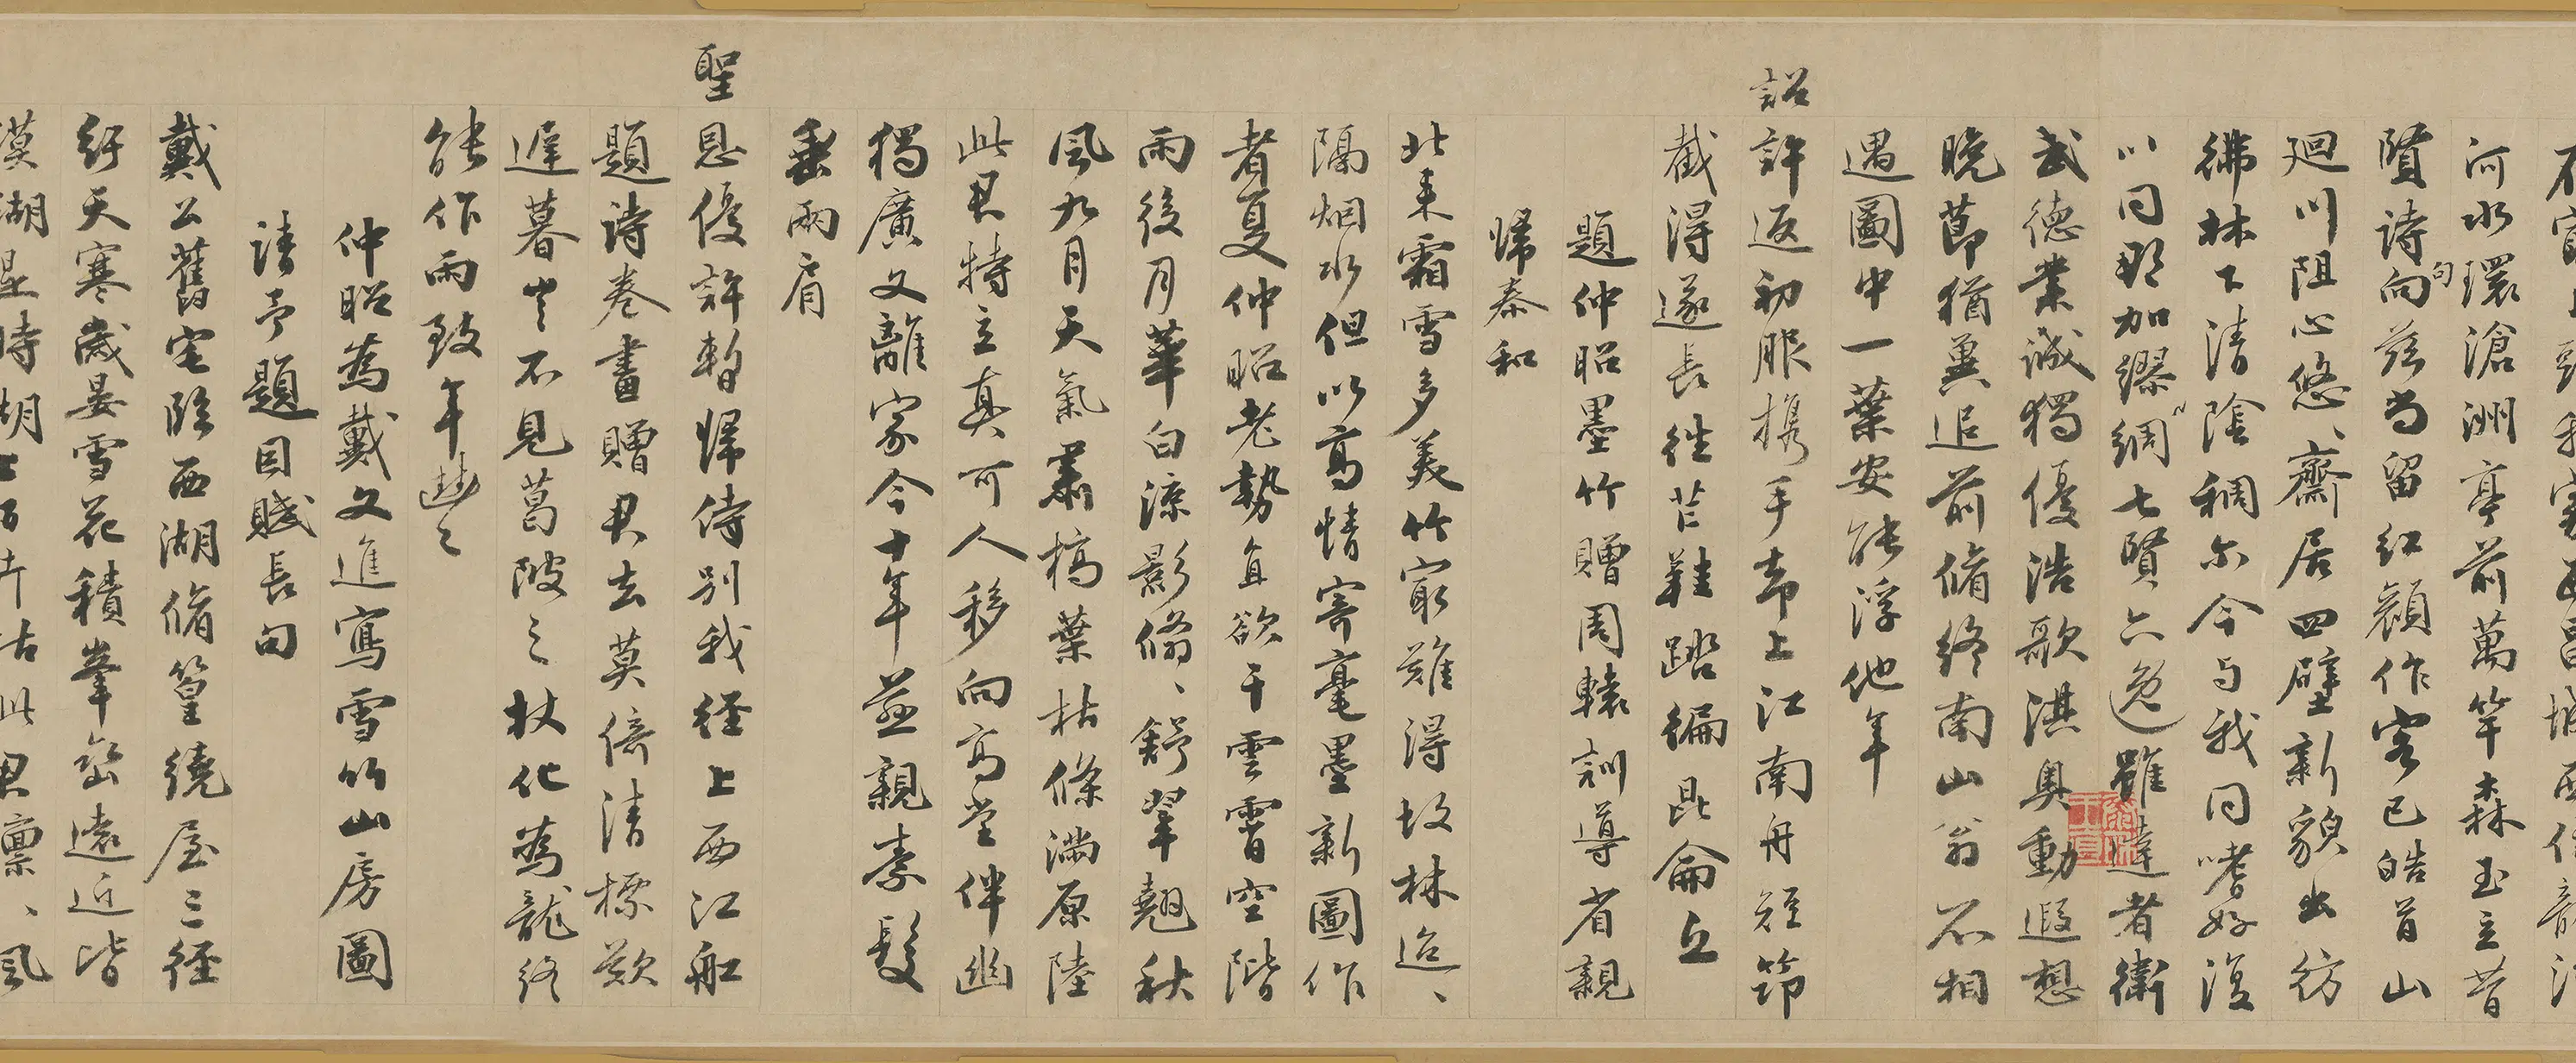 河水環滄洲亭前萬竿森玉立昔
賢詩句向茲當留紅顏作客已皓首山
迴川阻心悠、齋居四壁新貌出彷
彿林下清陰稠尒今与我同嗜好復
以同那加繆綢七賢六逸雖達者衛
武德業誠獨優浩歌淇奧動遐想
晚節猶兾追前脩終南山翁不相
遇圖中一葉安能浮他年
詔許返初服携手帝上江南舟短筇
截得遂長往芒鞋踏徧昆侖丘
題仲昭墨竹贈周轅訓導省親
歸泰和
北来霜雪多美竹寔難得故林迢、
隔烟水但以高情寄毫墨新圖作
者夏仲昭老勢直欲干雲霄空階
雨後月華白涼影翛、舒翠翹秋
風九月天氣肅槁葉枯條滿原陸
此君特立真可人移向高堂伴幽
獨廣文離家今十年慈親素髮
垂兩肩
聖恩優許暫歸侍別我徑上西江船
題詩卷畫贈君去莫倚清標歎
遲暮豈不見葛陂之杖化為龍終
能作雨致年豐
仲昭為戴文進寫雪竹山房圖
請予題因賦長句
戴公舊宅臨西湖脩篁繞屋三徑
紆天寒歲晏雪花積峯巒遠近皆